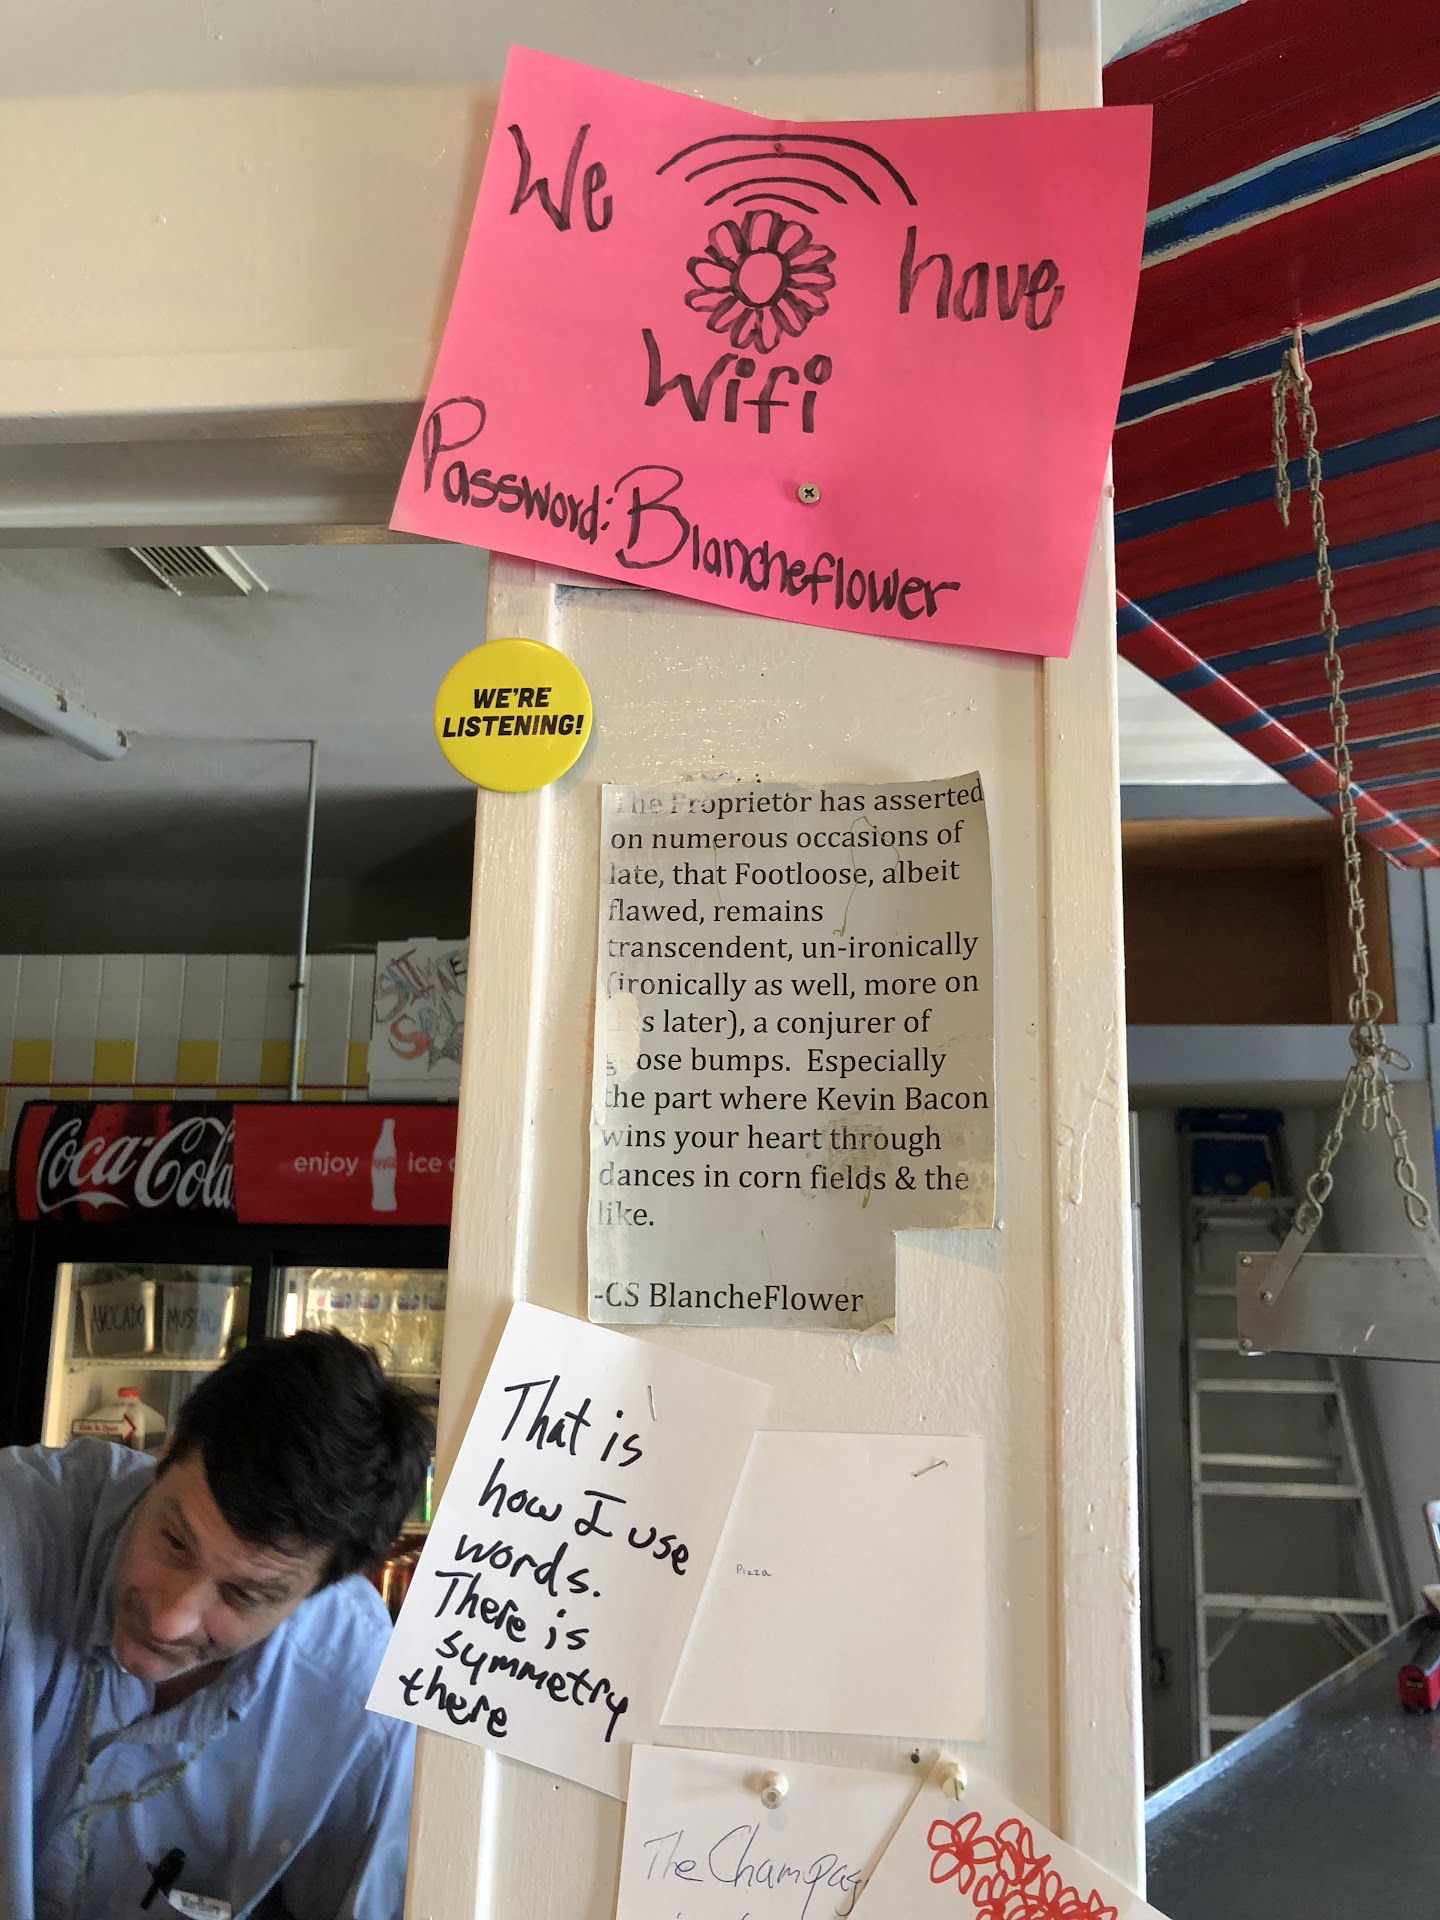 We have
Wifi
Password: Blancheflower
WE'RE
LISTENING!
The Proprietor has asserted
on numerous occasions of
late, that Footloose, albeit
flawed, remains
transcendent, un-ironically
(ironically as well, more on
s later), a conjurer of
g ose bumps. Especially
the part where Kevin Bacon
wins your heart through
dances in corn fields & the
like.
-CS BlancheFlower
Coca-Cola
enjoy
ice
AVOCADO
MUSTARD
That is
how I use
words.
There is
symmetry
there
Pizza
The Champag